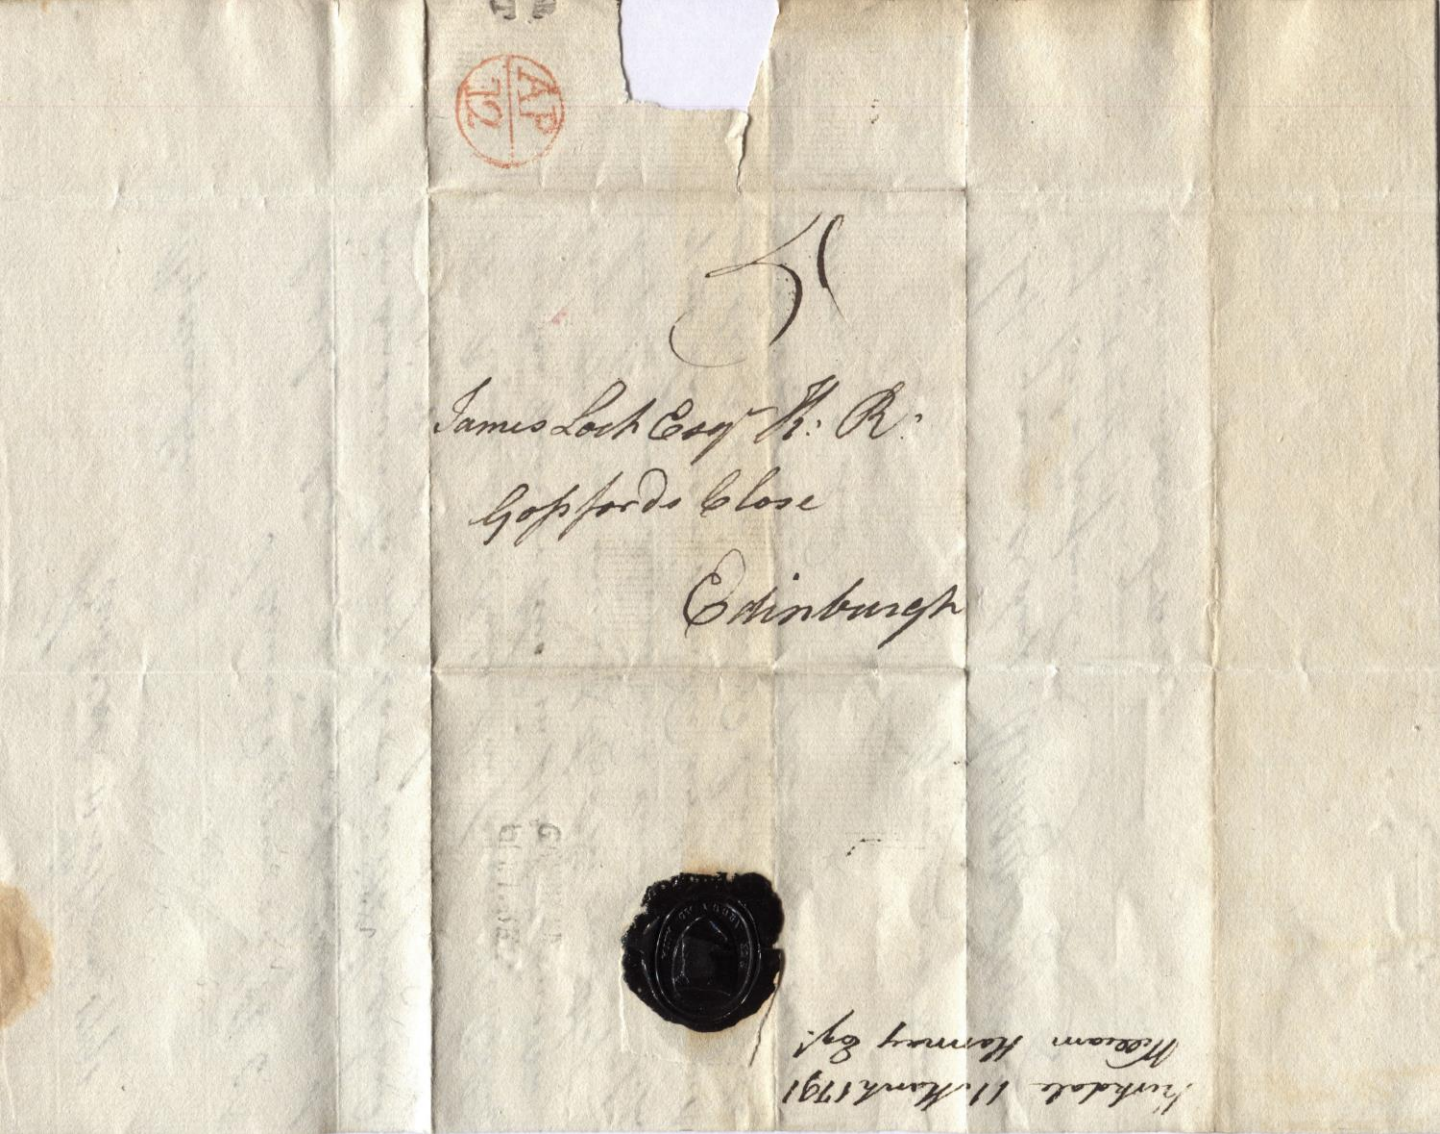 AP
12
5
James Loch Esqr K: R:
Gosfords Close
Edinburgh
Kirkdale 11 March 1791
William Hannay Esqr.